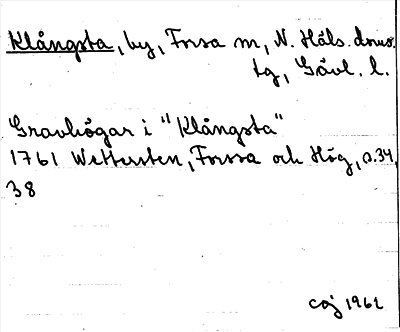 Klångsta, by, Forsa sn, N. Häls. doms.
tg, Gävl. l.
Gravhögar i "Klångsta"
1761 Wettersten, Forssa och Hög, s. 34,
38
caj 1962